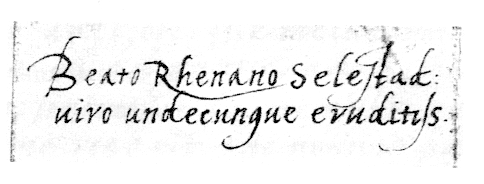 Beato Rhenano Selestad:
uiro undecunque eruditiſs.